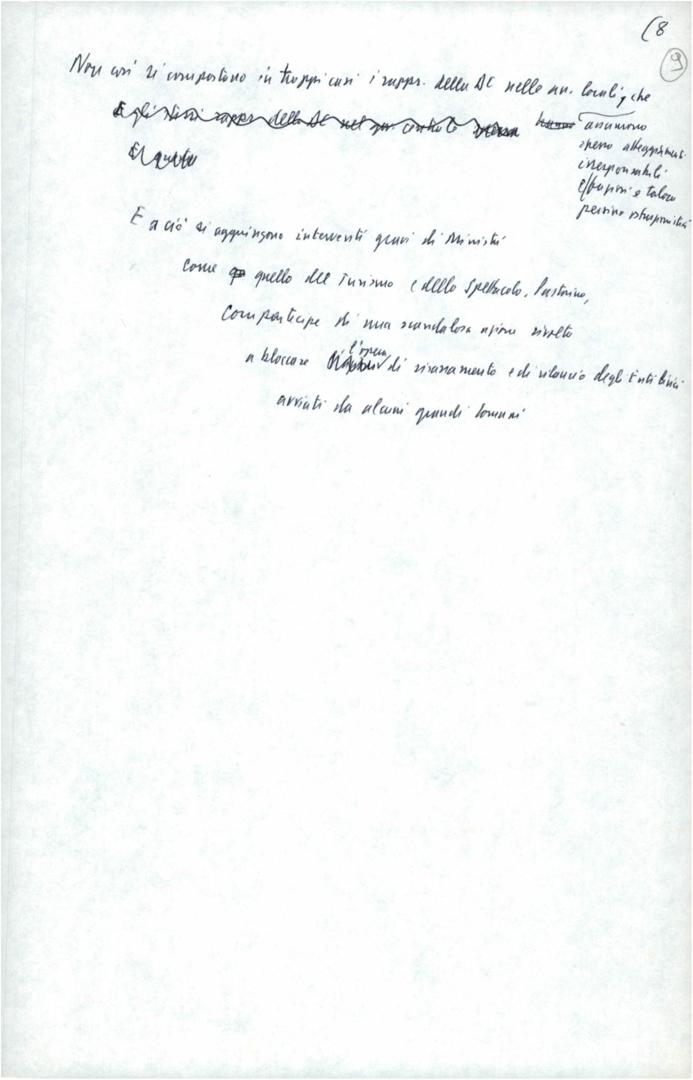 (8
9
Non così si comportano in troppi casi i rappr. della DC nelle ass. locali, che
E gli stessi rappr. della DC nel
assumono
spesso atteggiamenti
irresponsabili
e talora
persino ostruzionistici
E a ciò si aggiungono interventi gravi di Ministri
come quello del Turismo e dello Spettacolo, Pastorino,
compartecipe di una scandalosa azione rivolta
a bloccare l'opera di risanamento e di rilancio degli Enti lirici
avviati da alcuni grandi Comuni